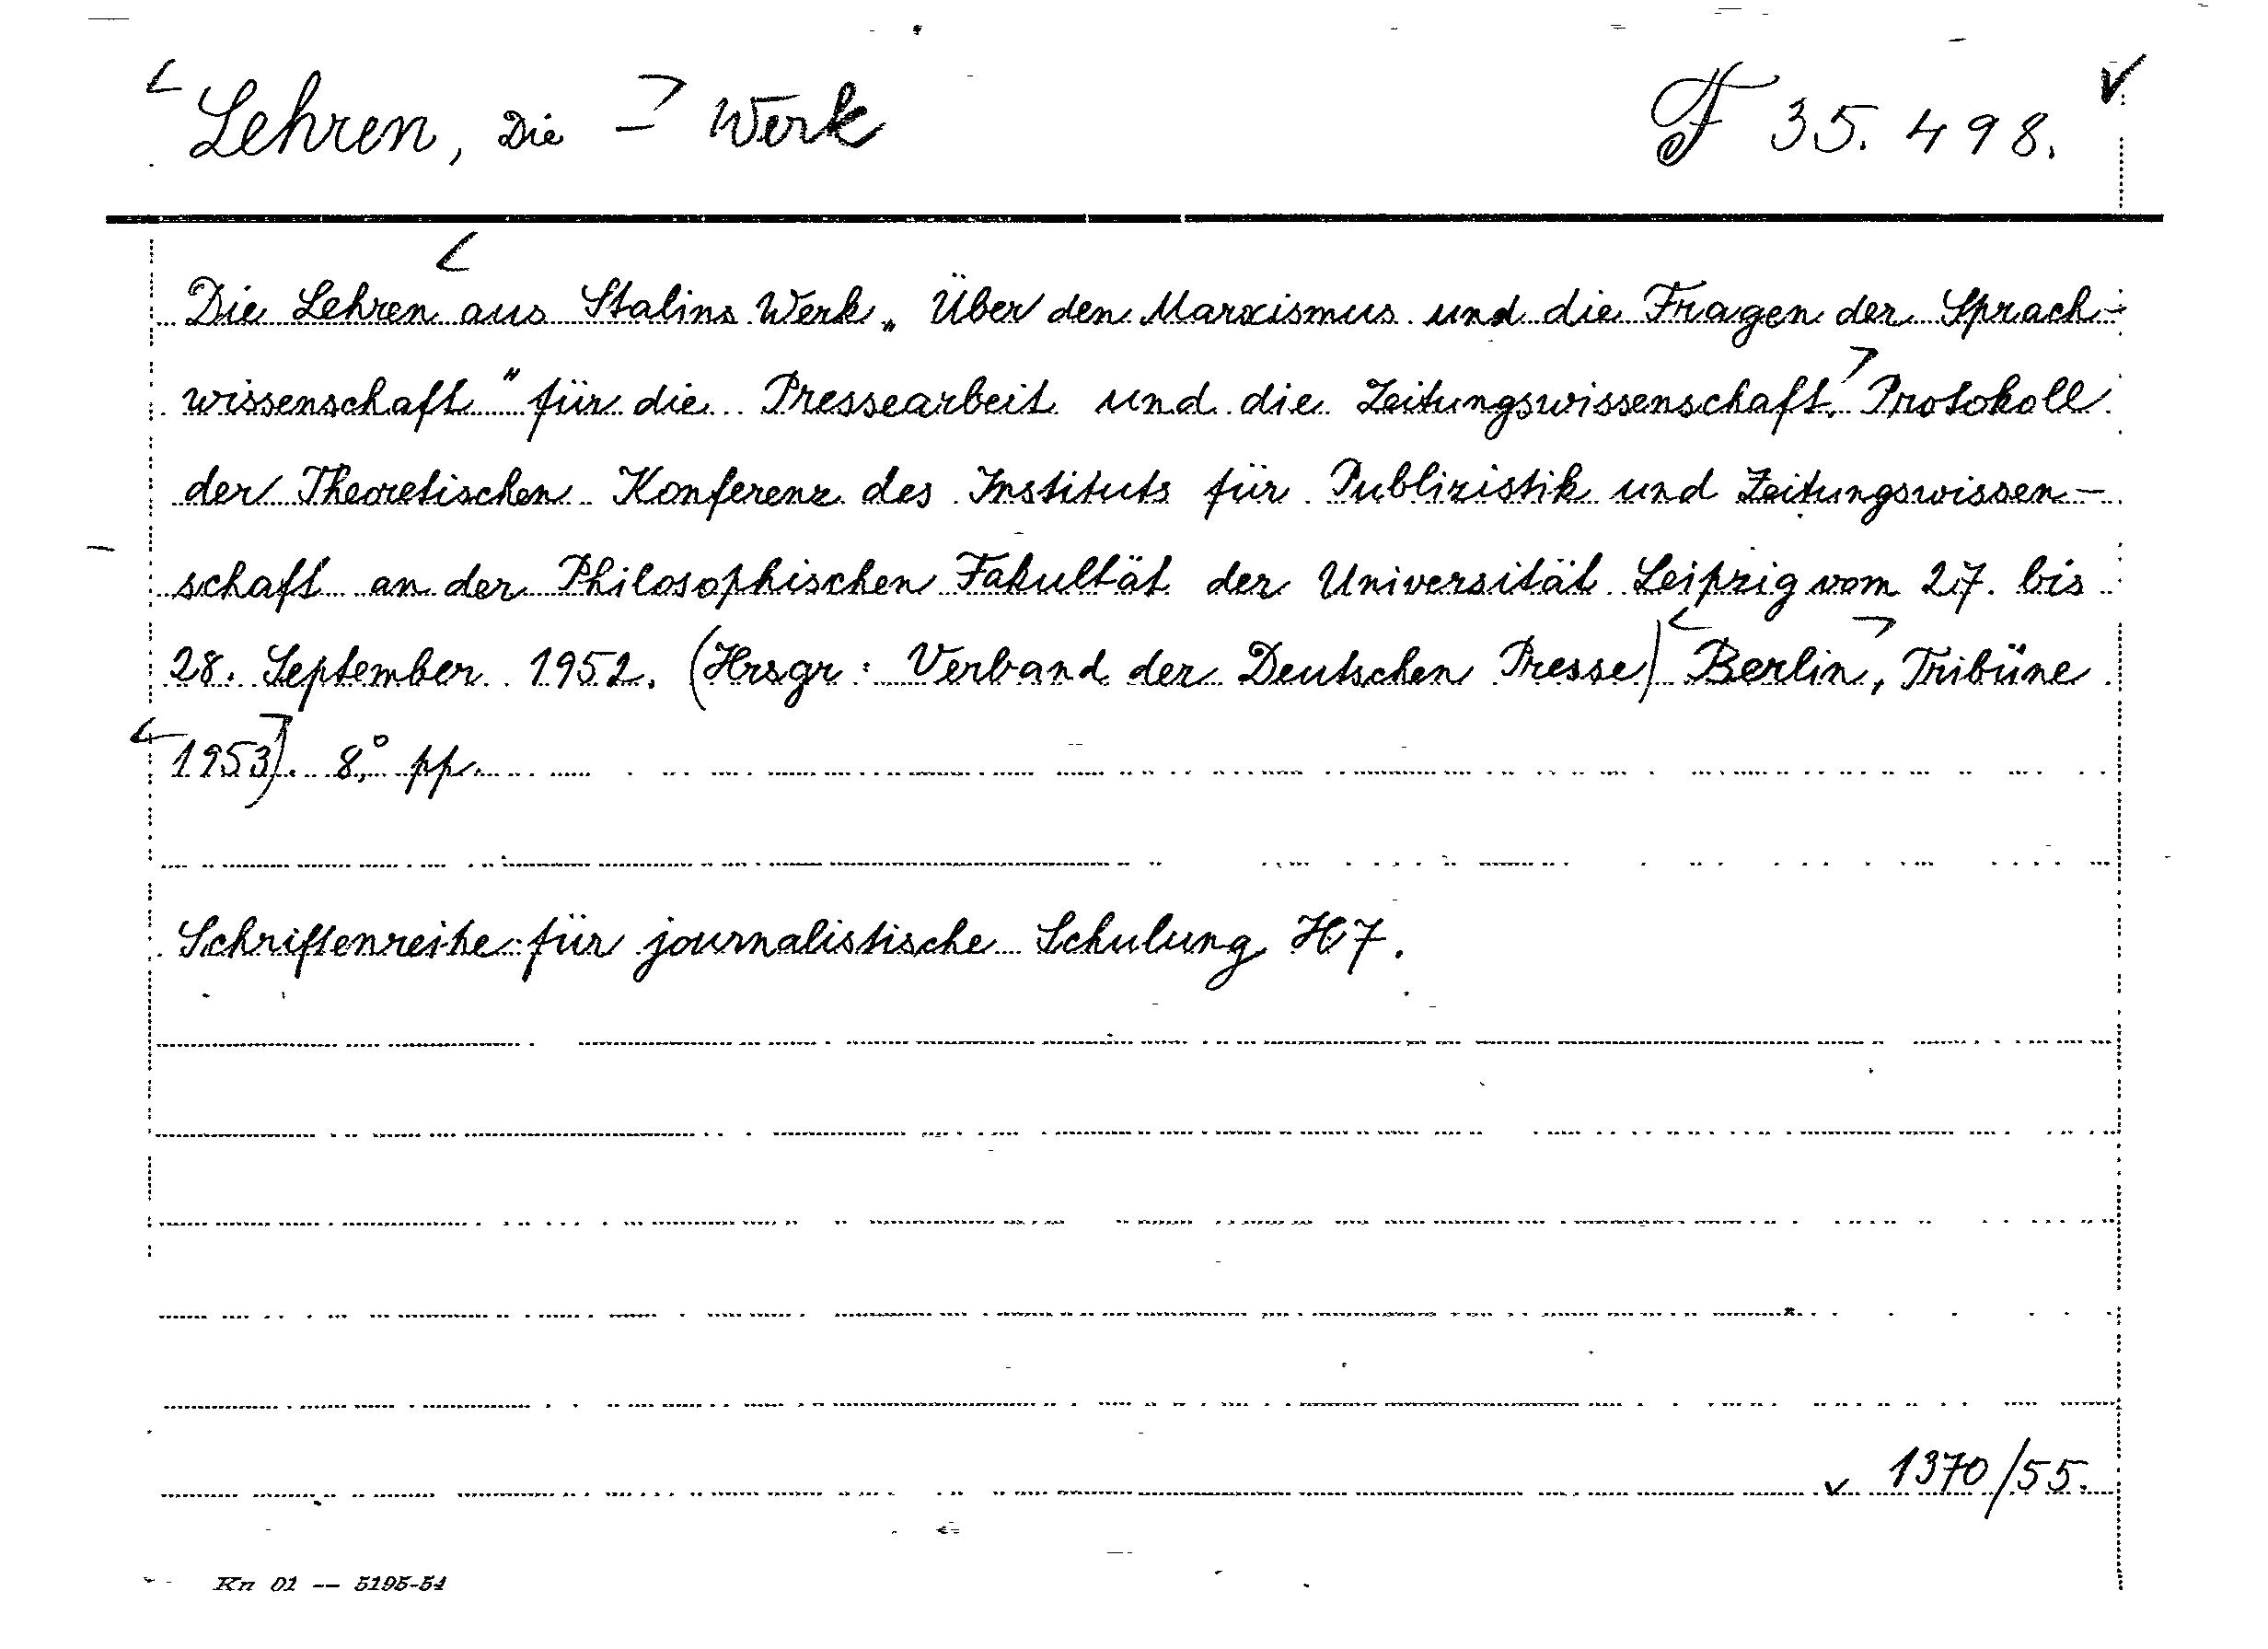 Lehren, Die – Werk F 35.498.
Die Lehren aus Stalins Werk „Über den Marxismus und die Fragen der Sprach-
wissenschaft" für die Pressearbeit und die Zeitungswissenschaft. Protokoll
der Theoretischen Konferenz des Instituts für Publizistik und Zeitungswissen-
schaft an der Philosophischen Fakultät der Universität Leipzig vom 27. bis
28. September 1952. (Hrsgr: Verband der Deutschen Presse) Berlin, Tribüne
1953). 8,° pp.
Schriftenreihe für journalistische Schulung H 7.
1370/55.
Kn 01 -- 5195-54